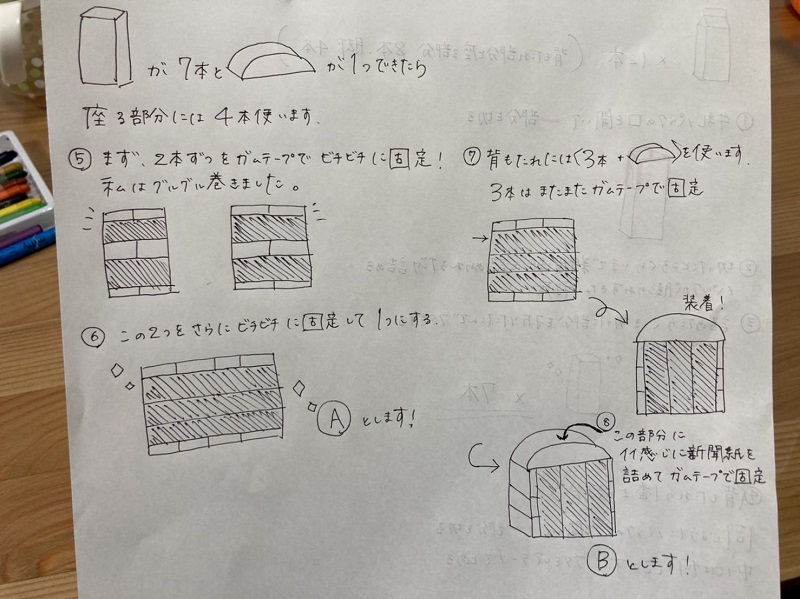 が 7本と が1つできたら
座る部分には 4本使います.
⑤ まず、2本ずつをガムテープで ビチビチに固定!
私はグルグル巻きました。
⑥ この2つをさらにビチビチに固定して1つにする.
Ⓐ とします!
⑦ 背もたれには(3本 + )を使います.
3本はまたまたガムテープで固定
装着!
⑧ この部分に
イイ感じに新聞紙を
詰めてガムテープで固定
Ⓑ とします!